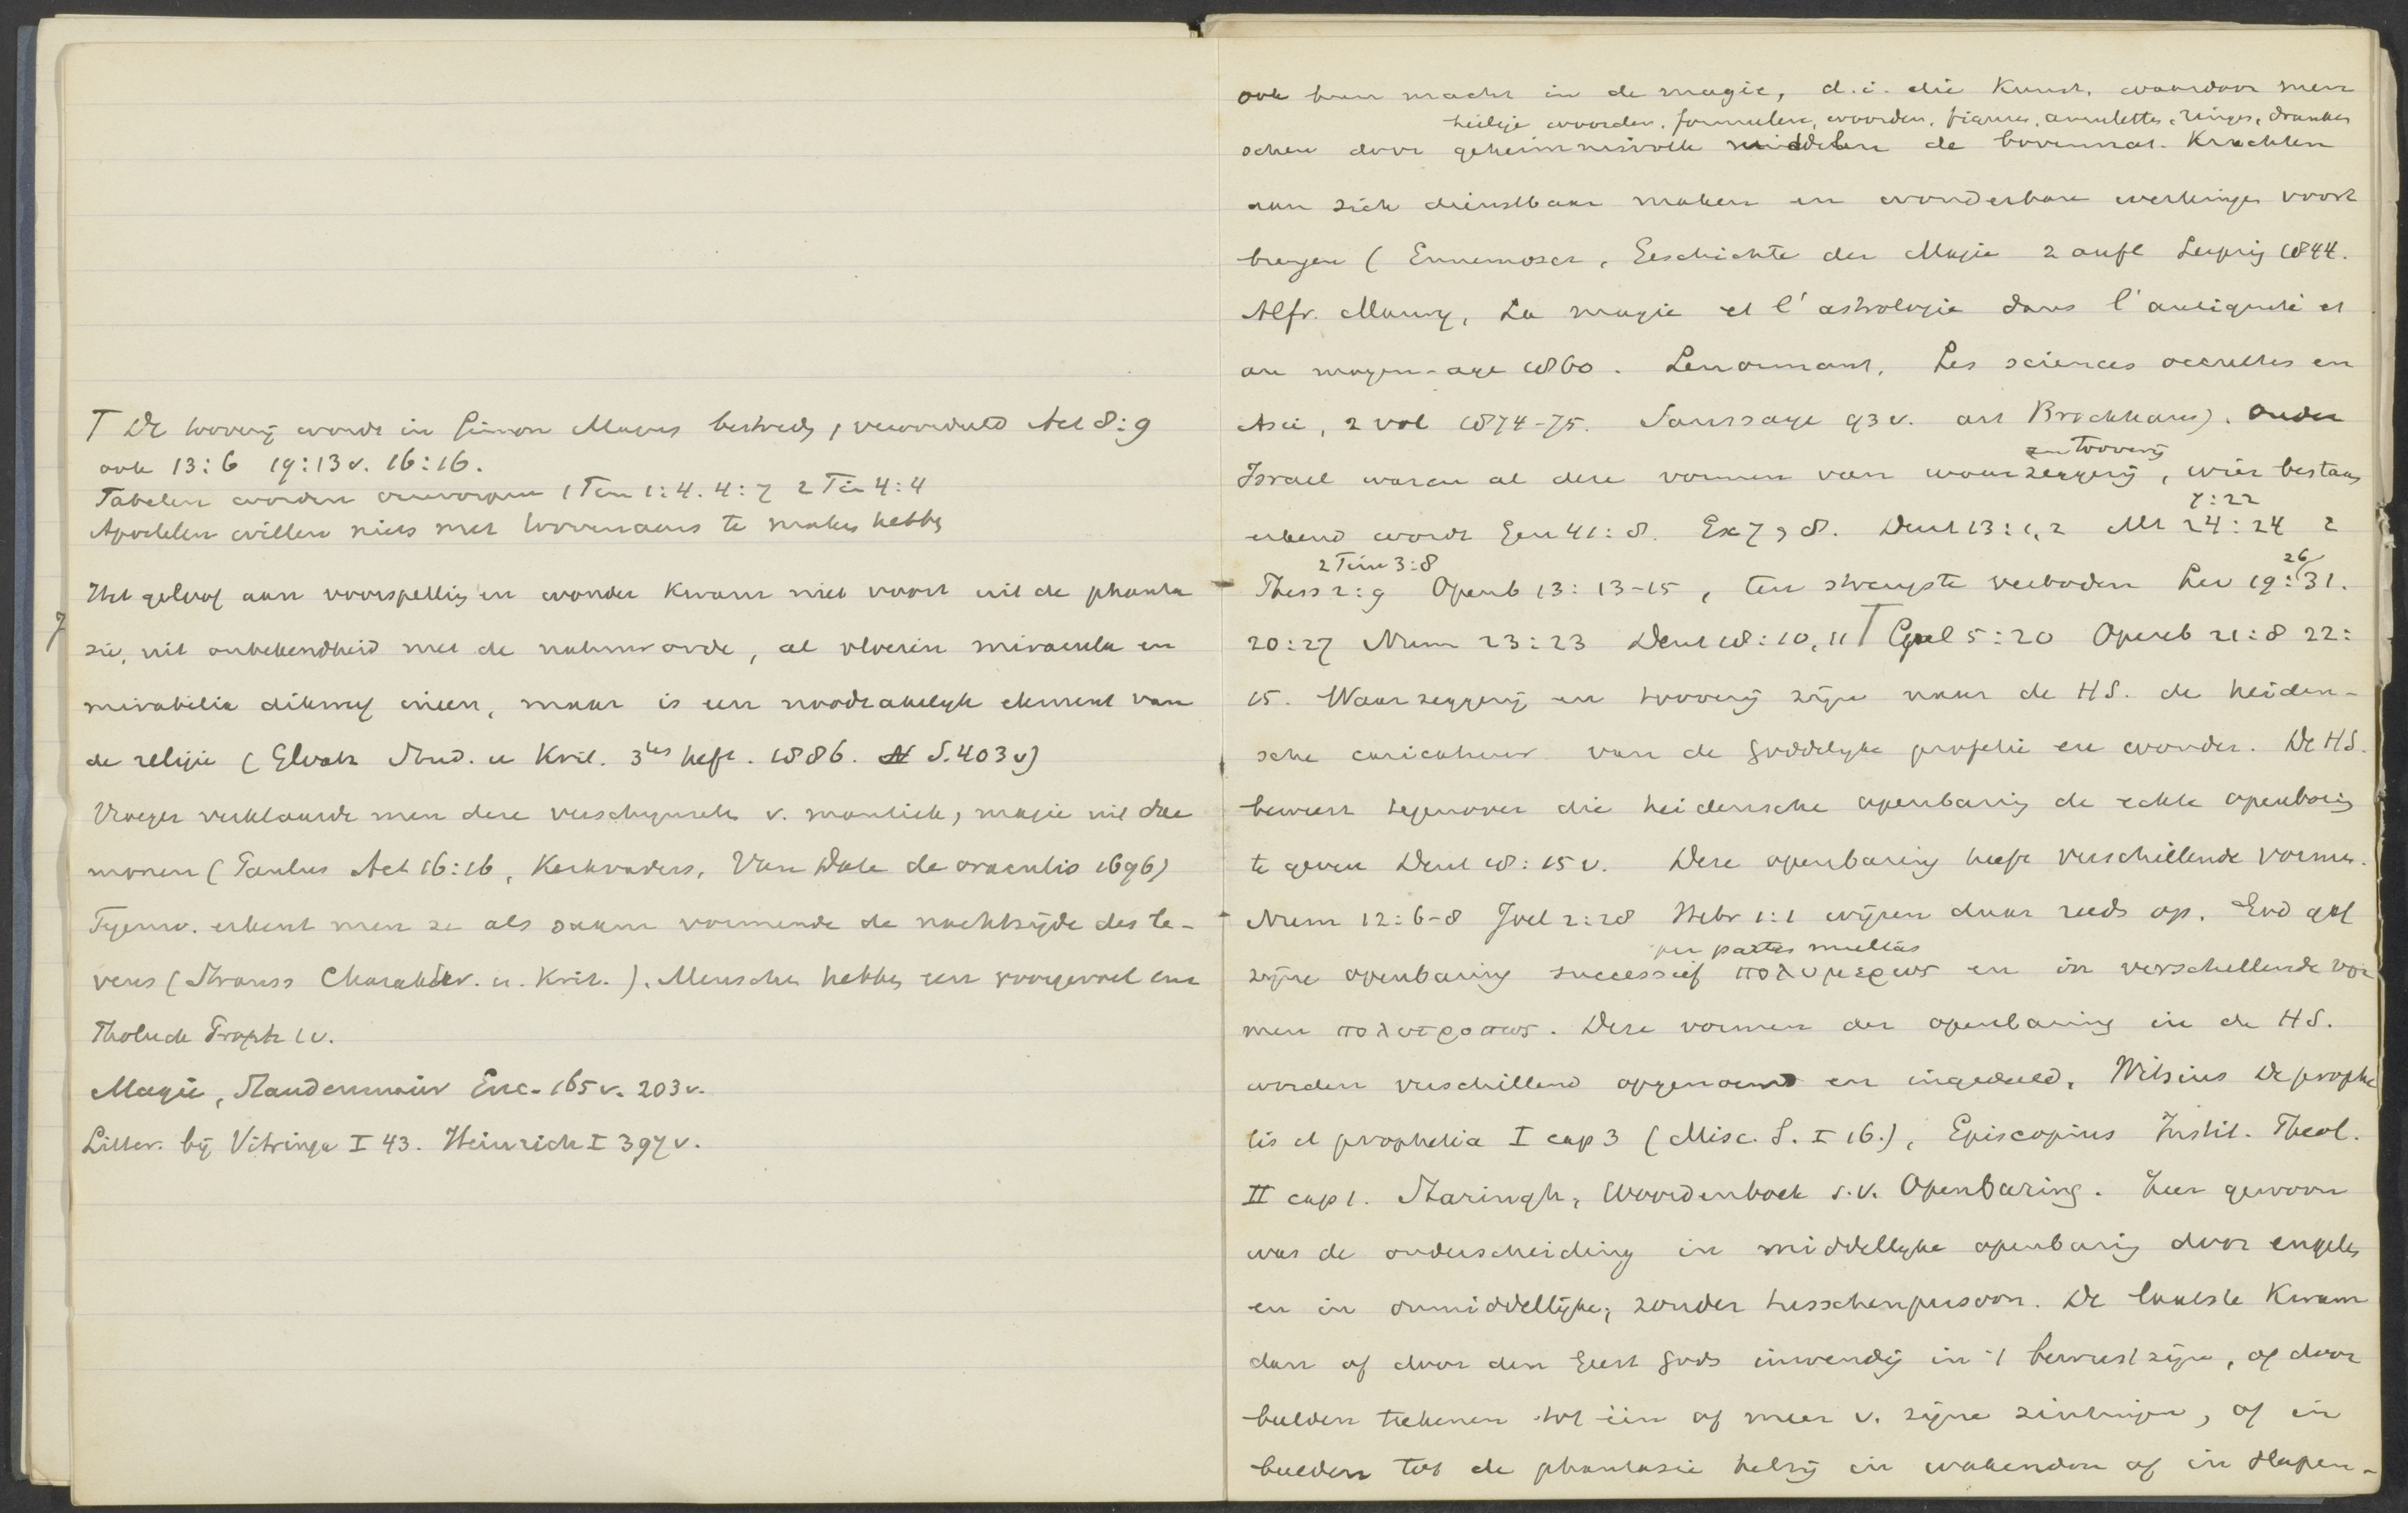 T De toovery wordt in Simon Magus bestreden, veroordeeld Act 8:9
ook 13:6 19:13v. 16:16.
Fabelen worden verworpen 1 Tim 1:4. 4:7 2 Tim 4:4
Apostelen willen niets met toovenaars te maken hebben
Het geloof aan voorspelling en wonder kwam niet voort uit de phanta
sie, uit onbekendheid met de natuurorde, al vloeien miracula en
mirabilia dikwyf ineen, maar is een noodzakelyk element van
de religie (Stud. u Krit. 3tes heft. 1886. S. 403v)
Vroeger verklaarde men deze verschynselen v. mantiek, magie uit dae
monen (Paulus Act 16:16, Kerkvaders, Van Dale de oraculis 1696)
Tegenw. erkent men ze als saam vormende de nachtzyde des le-
vens (Strauss Charakter. u. Krit.). Menschen hebben een voorgevoel enz
Tholuck Proph 1v.
Magie, Staudenmaier Enc. 165v. 203v.
Litter. by Vitringa I 43. Heinrich I 397v.
ook hun macht in de magie, d.i. die kunst, waardoor men
heilige woorden, formulen, woorden, figuren, amuletten, ringen, dranken
schen door geheimnisvolle middelen de bovennat. krachten
aan zich dienstbaar maken en wonderbare werkingen voort
brengen (Ennemoser, Geschichte der Magie 2 aufl Leipzig 1844.
Alfr. Maury, La magie et l'astrologie dans l'antiquité et
au moyen-age 1860. Lenormant, Les sciences occultes en
Asie, 2 vol 1874-75. Saussaye 93v. art Brockhaus). Onder
en toovery
Israel waren al deze vormen van waarzeggery, wier bestaan
7:22
erkend wordt Gen 41:8. Ex 7, 8. Deut 13:1,2 Mt 24:24 2
2 Tim 3:8
26
Thess 2:9 Openb 13:13-15, ten strengste verboden Lev 19:31.
20:27 Num 23:23 Deut 18:10, 11 T Gal 5:20 Openb 21:8 22:
15. Waarzeggery en toovery zyn naar de HS. de heiden-
sche caricatuur van de Goddelyke profetie en wonder. De HS.
beweert tegenover die heidensche openbaring de echte openbaring
te geven Deut 18:15 v. Deze openbaring heeft verschillende vormen.
Num 12:6-8 Joel 2:28 Hebr 1:1 wyzen daar reeds op. God gaf
per partes multas
zyne openbaring successief πολυμερως en in verschillende vor
men πολυτροπως. Deze vormen der openbaring in de HS.
worden verschillend opgenoemd en ingedeeld. Witsius De prophe
tis et prophetia I cap 3 (Misc. S. I 16.), Episcopius Instit. Theol.
II cap 1. Staringh, Woordenboek s.v. Openbaring. Zeer gewoon
was de onderscheiding in middellyke openbaring door engelen
en in onmiddellyke, zonder tusschenpersoon. De laatste kwam
dan of door den Geest Gods inwendig in 't bewustzyn, of door
beelden teekenen tot één of meer v. zyne zintuigen, of in
beelden tot de phantasie hetzy in wakenden of in slapen-